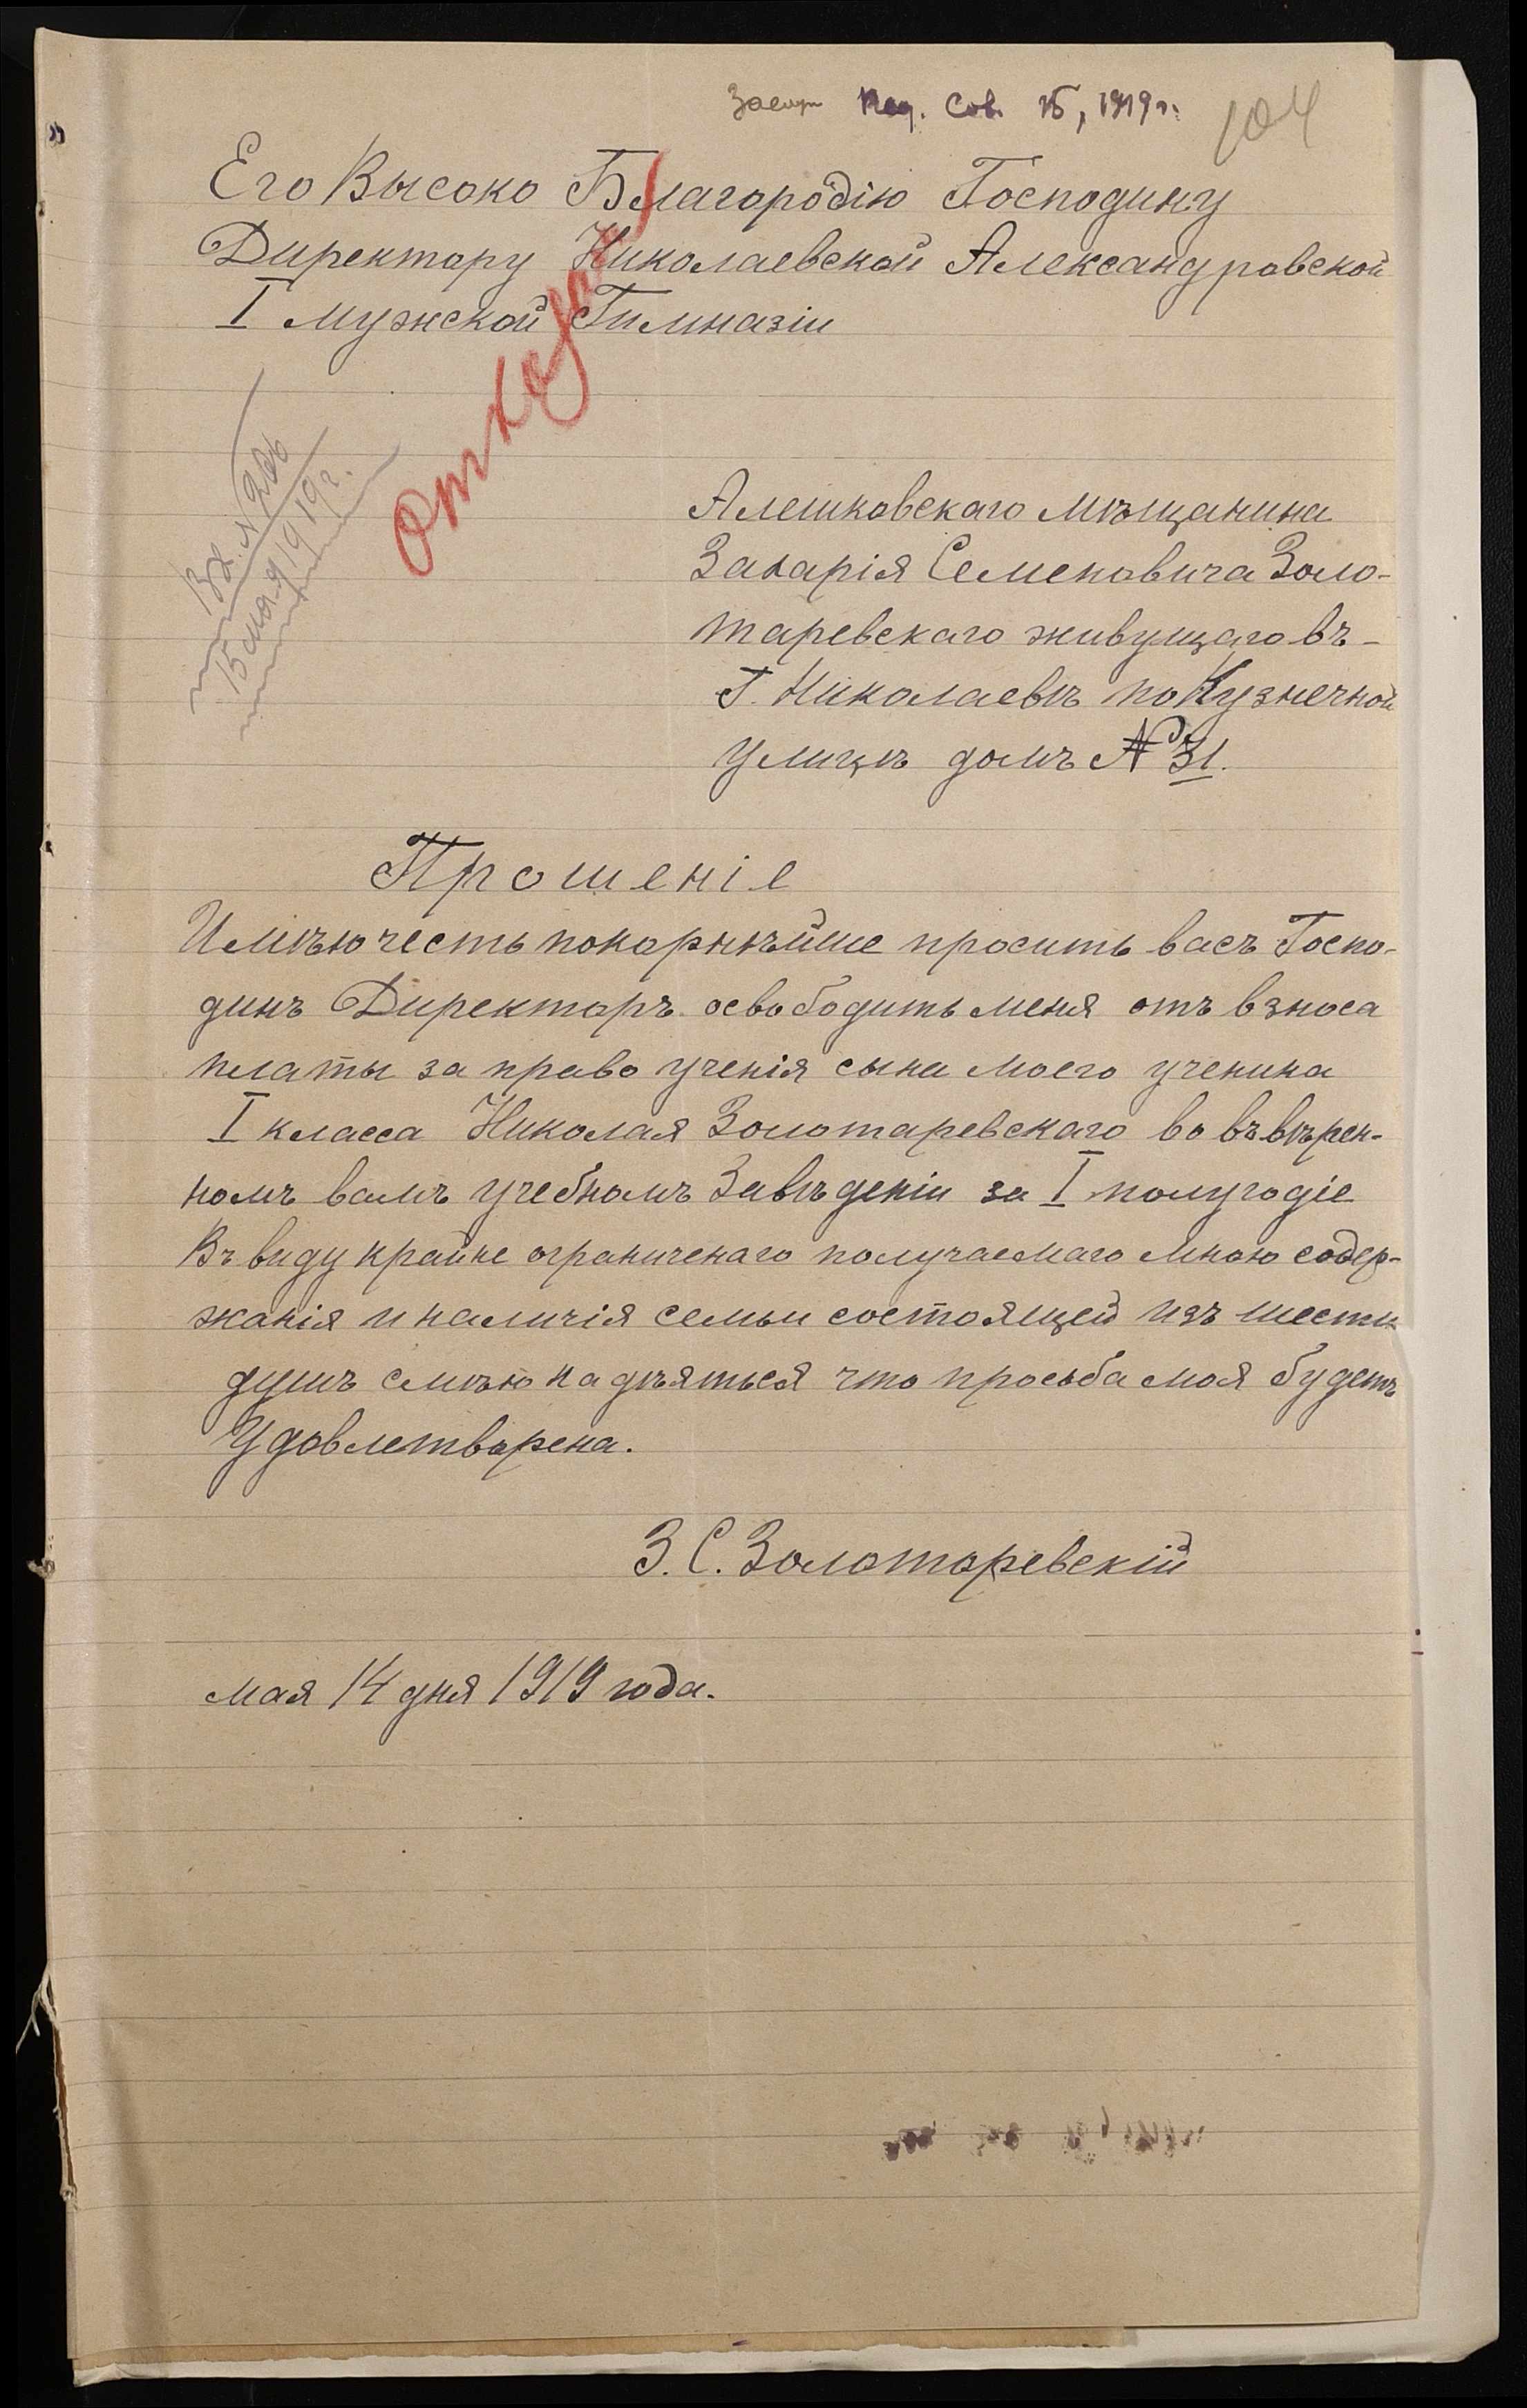 Засед Пед. Сов. 15, 1919 г.
104
Его Высоко Благородію Господину
Директору Николаевской Александровской
I мужской Гимназіи
Отказать
Вх. №
15 мая 1919 г.
Алешковскаго мѣщанина
Захарія Семеновича Золо-
таревскаго живущаго въ-
Г. Николаевѣ по Кузнечной
улицѣ домъ № 31.
Прошеніе
Имѣю честь покорнѣйше просить васъ Госпо-
динъ Директоръ освободить меня отъ взноса
платы за право ученія сына моего ученика
I класса Николая Золотаревскаго во въвѣрен-
номъ вамъ учебномъ Завѣденіи за I полугодіе
Въ виду крайне ограниченаго получаемаго мною содер-
жанія и наличія семьи состоящей изъ шести
душъ смѣю надѣяться что просьба моя будетъ
Удовлетворена.
З. С. Золотаревскій
мая 14 дня 1919 года.